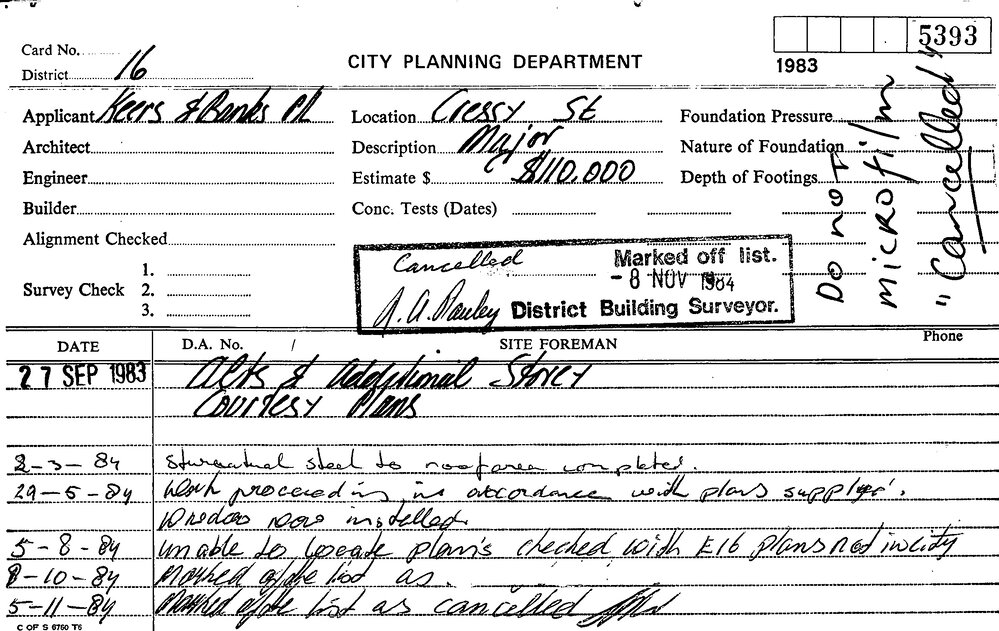 5393
1983
Card No.
District 16
CITY PLANNING DEPARTMENT
Applicant Keers & Banks PL
Location Cressy St
Foundation Pressure
Architect
Description Major
Nature of Foundation
Engineer
Estimate $ $110,000
Depth of Footings
Builder
Conc. Tests (Dates)
Alignment Checked
Survey Check
1.
2.
3.
Do not
microfilm
"Cancelled"
Cancelled
Marked off list.
- 8 NOV 1984
District Building Surveyor.
DATE
D.A. No. /
SITE FOREMAN
Phone
27 SEP 1983 Alts & Additional Storey
Courtesy Plans
2-3-84 steel to roof area completed.
29-5-84 Work proceeding in accordance with plans
Windows now installed.
5-8-84 unable to locate plans checked with E16 plans not in city
8-10-84 Marked off the list as.
5-11-84 Marked off the list as cancelled
C OF S 6760 T6